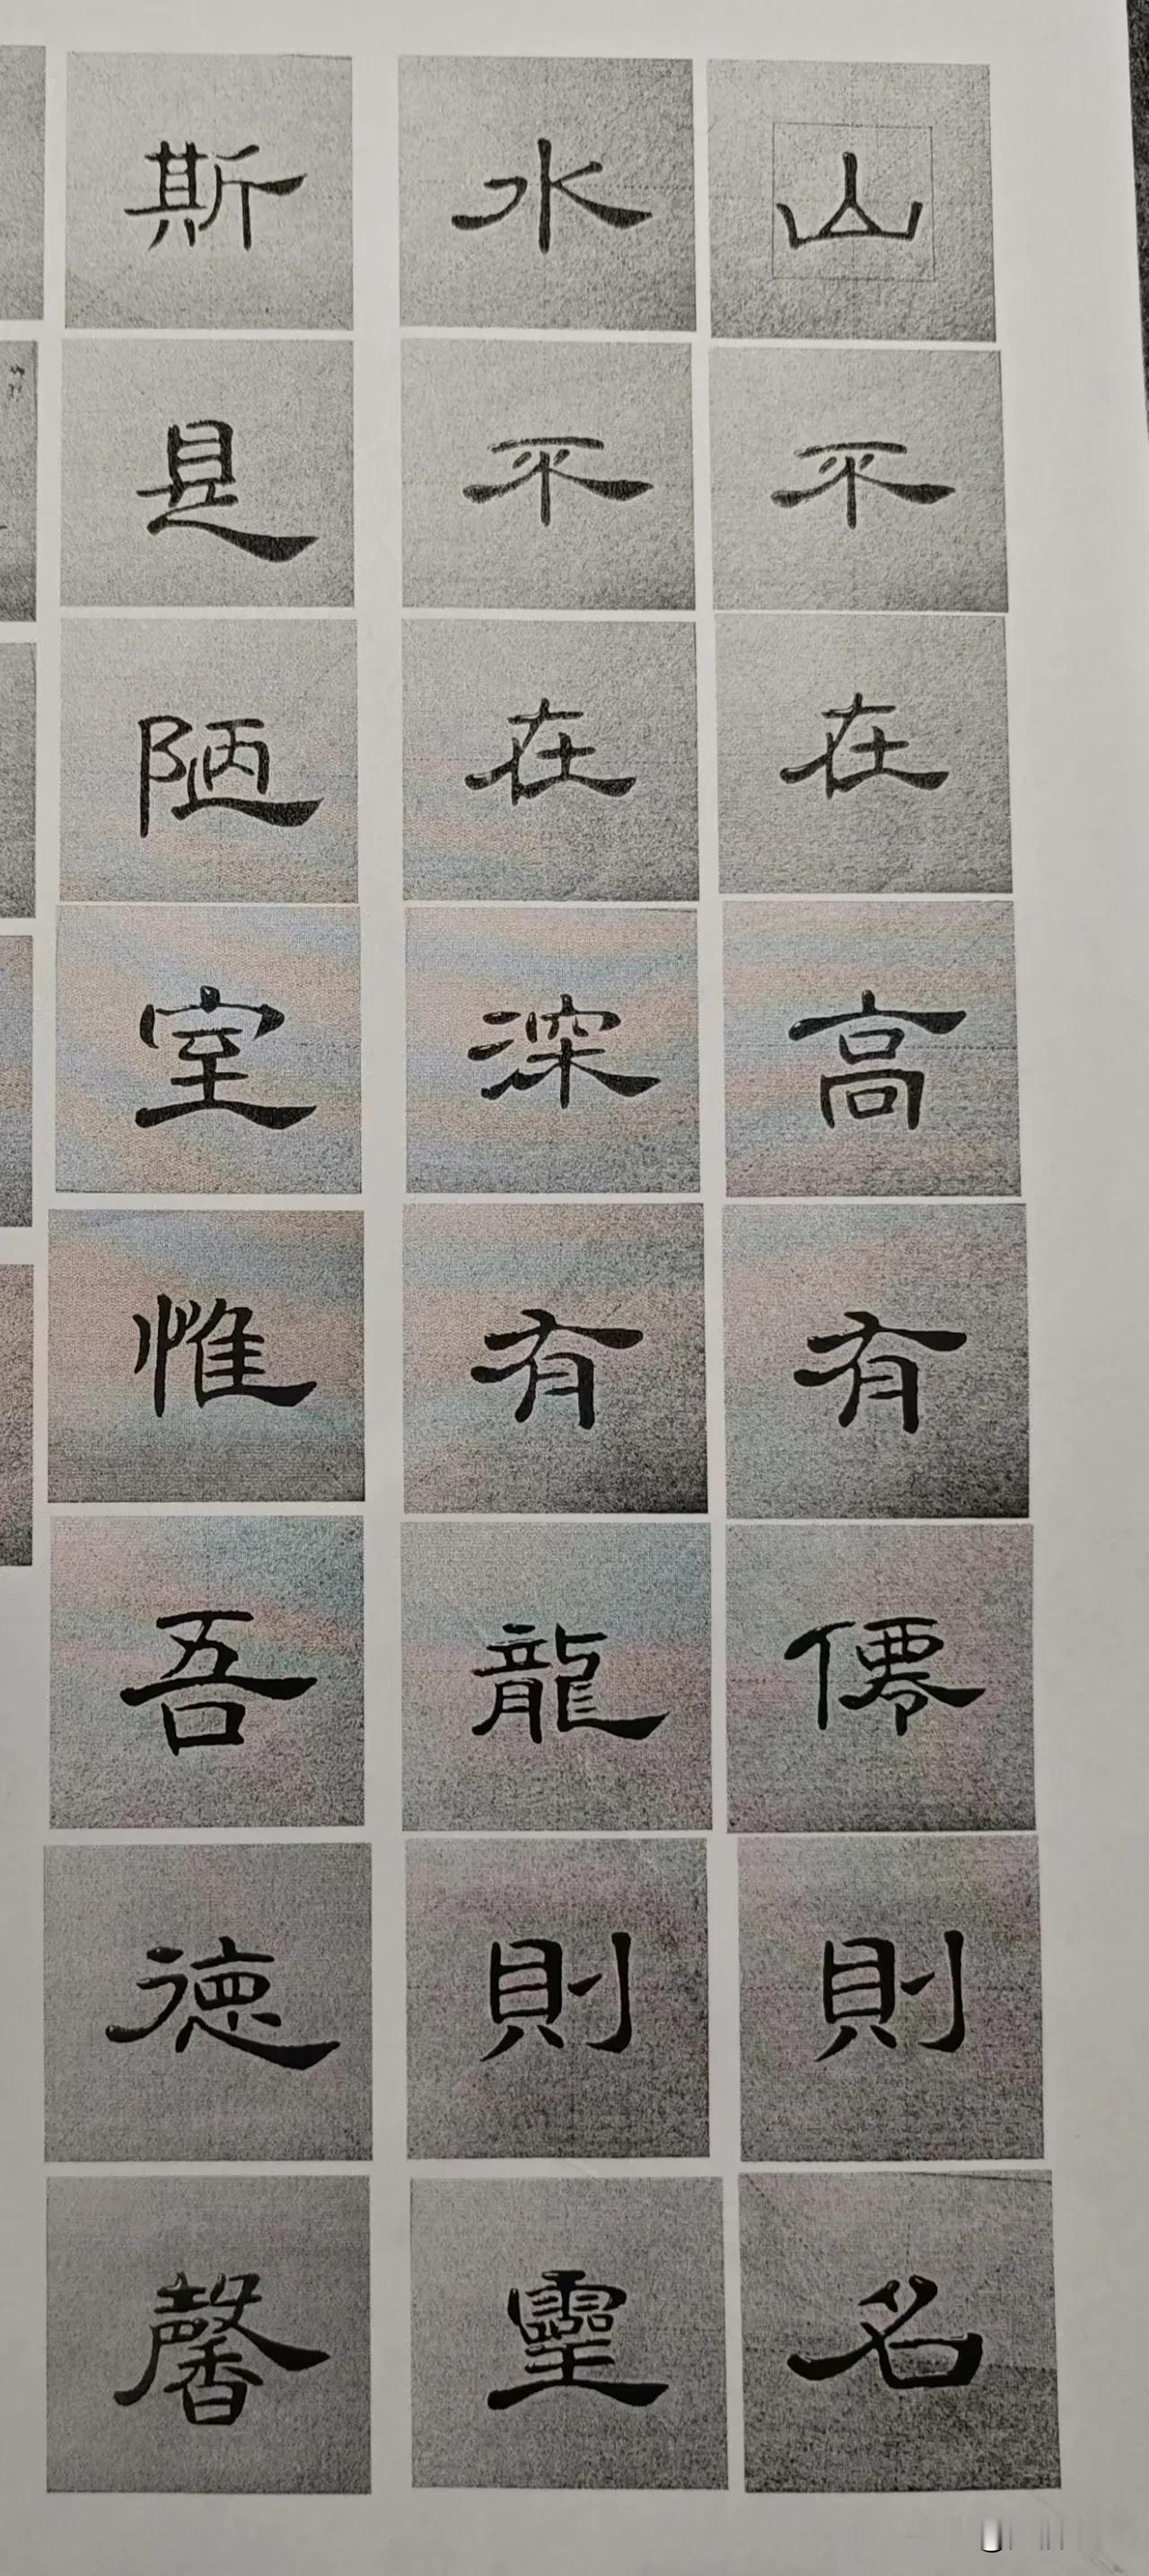 山不在高有僊則名
水不在深有龍則靈
斯是陋室惟吾德馨